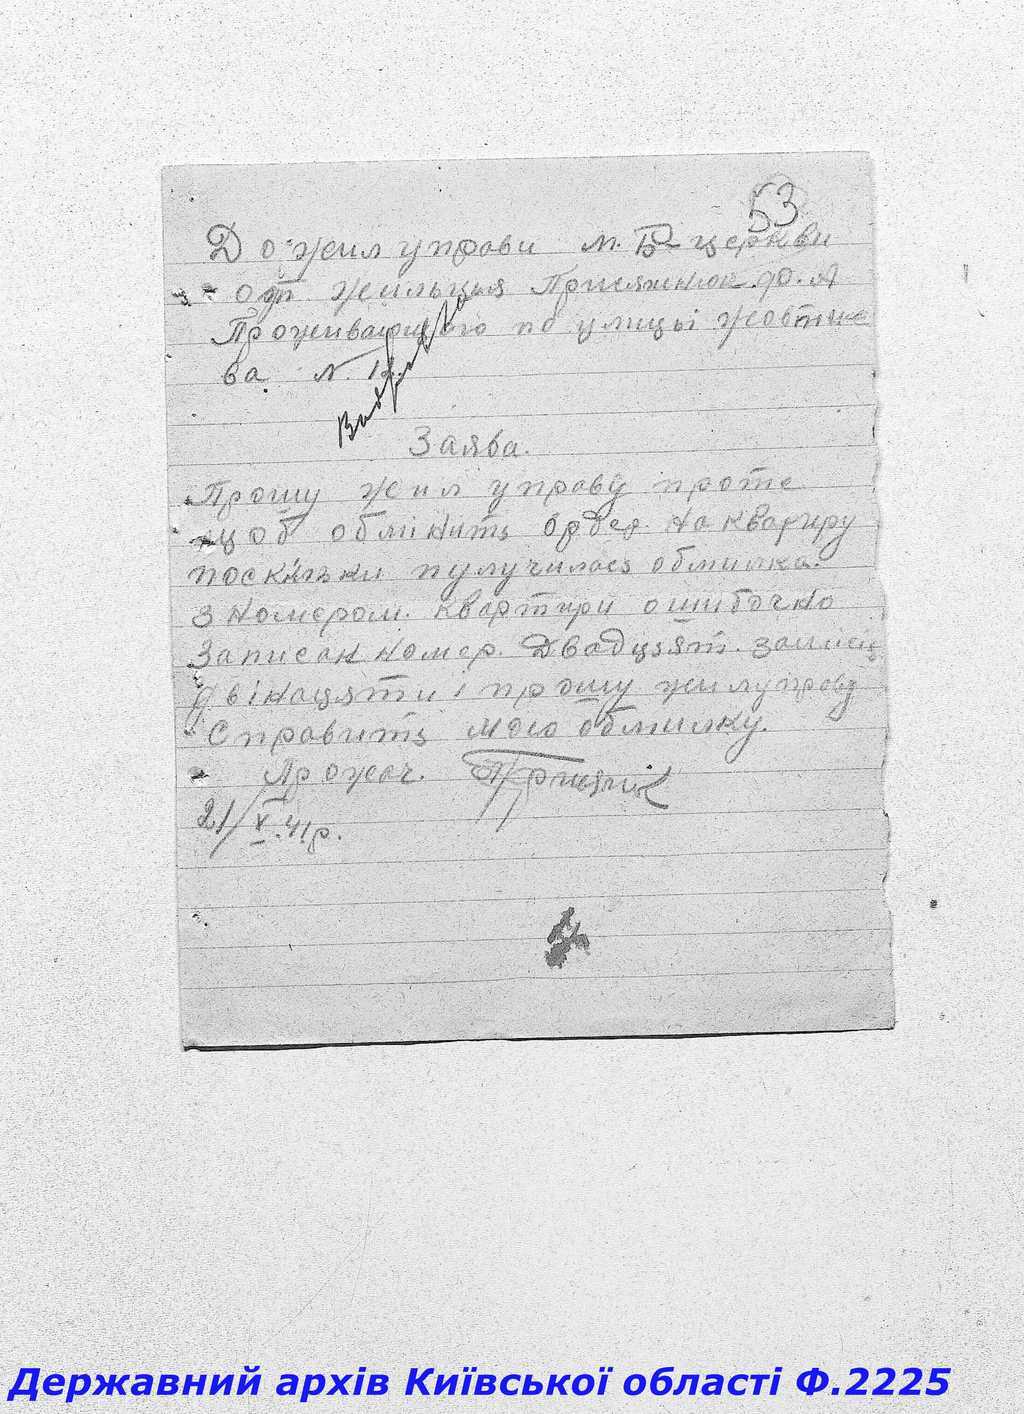 53
До жил управи м. Б-церкви
от жильця Присяжнюк Ф. А
Проживающого по улицы Жовтне
ва N. 12
Заява.
Прошу жил управу проте
щоб обмінить ордер на квартиру
поскільки пулучилась обмилка.
з номером. квартири ошибочно
Записан номер. Двадцять. замісць
Двінацяти і прошу жилуправу
Справить мою обмилку.
Прохач. Присяжнюк
21/X.41р.
Державний архів Київської області Ф.2225